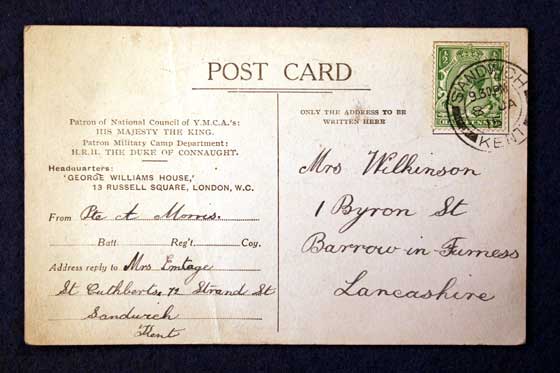 POST CARD
Patron of National Council of Y.M.C.A.'s:
HIS MAJESTY THE KING.
Patron Military Camp Department:
H.R.H. THE DUKE OF CONNAUGHT.
Headquarters:
'GEORGE WILLIAMS HOUSE,'
13 RUSSELL SQUARE, LONDON, W.C.
From Pte A Morris.
Batt Reg't. Coy.
Address reply to Mrs Emtage
St Cuthberts, 72 Strand St
Sandwich
Kent
ONLY THE ADDRESS TO BE
WRITTEN HERE
Mrs Wilkinson
1 Byron St
Barrow-in-Furness
Lancashire
SANDWICH
9.30PM
15
KENT